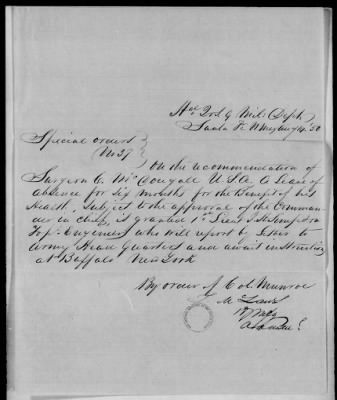 Hd Qrs 9 Mil: Dept
Santa Fe N Mex Aug 14. 50
Special orders
No 37
On the recommendation of
Surgeon C. McDougall U.S.A. a Leave of
absence for six months for the Benefit of his
Health. Subject to the approval of the Comman-
der in chief, is granted 1st Lieut
Top. Engineers who will report by letter to
Army Head Quarters and await instructions
at Buffalo New York
By order of Col Munroe
Mc Laws